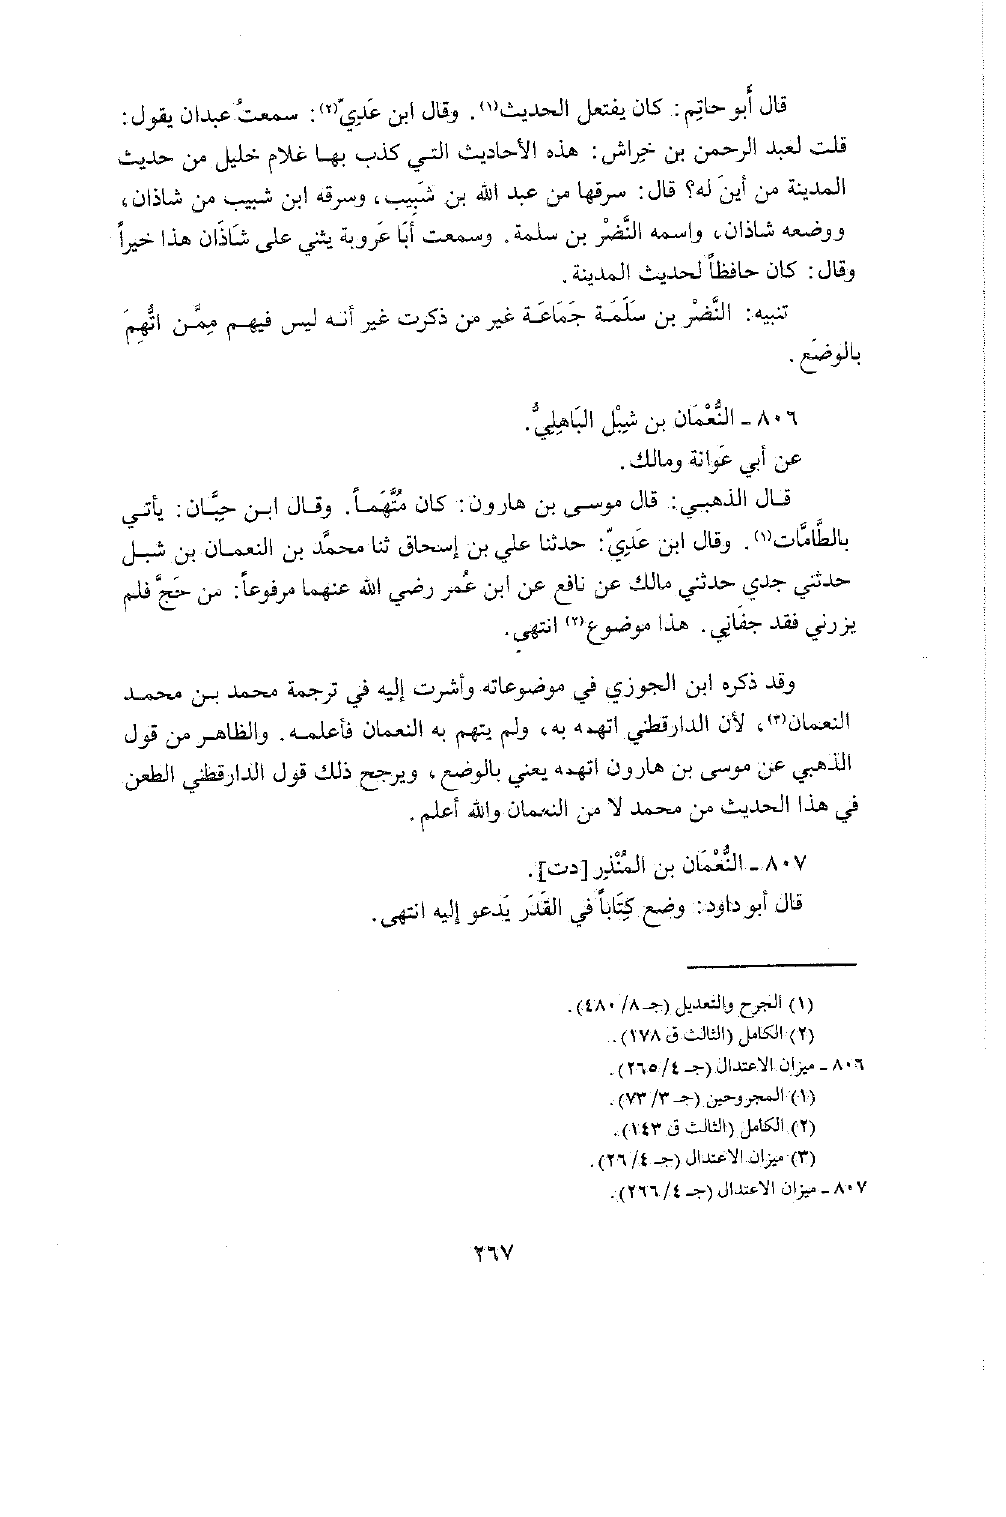 قال أَبو حاتِم: كان يفتعل الحديث(١). وقال ابن عَدِيّ(٢): سمعتُ عبدان يقول:
قلت لعبد الرحمن بن خِراش: هذه الأحاديث التي كذب بها غلام خليل من حديث
المدينة من أينَ له؟ قال: سرقها من عبد الله بن شَبِيب، وسرقه ابن شبيب من شاذان،
ووضعه شاذان، واسمه النَّضْر بن سلمة. وسمعت أبَا عَروبة يثني على شَاذَان هذا خيراً
وقال: كان حافظاً لحديث المدينة.
تنبيه: النَّضْر بن سَلَمَة جَمَاعَة غير من ذكرت غير أنه ليس فيهم مِمَّن اتُّهِمَ
بالوضَع.
٨٠٦ - النُّعْمَان بن شِبْل البَاهِلِيُّ.
عن أبي عَوانة ومالك.
قال الذهبي: قال موسى بن هارون: كان مُتَّهَماً. وقال ابن حِبَّان: يأتي
بالطَّامَّات(١). وقال ابن عَدِيّ: حدثنا علي بن إسحاق ثنا محمَّد بن النعمان بن شبل
حدثني جدي حدثني مالك عن نافع عن ابن عُمر رضي الله عنهما مرفوعاً: من حَجَّ فلم
يزرني فقد جفَانِي. هذا موضوع(٢) انتهى.
وقد ذكره ابن الجوزي في موضوعاته وأشرت إليه في ترجمة محمد بن محمد
النعمان(٣)، لأن الدارقطني اتهمه به، ولم يتهم به النعمان فأعلمه. والظاهر من قول
الذهبي عن موسى بن هارون اتهمه يعني بالوضع، ويرجح ذلك قول الدارقطني الطعن
في هذا الحديث من محمد لا من النعمان والله أعلم.
٨٠٧ - النُّعْمَان بن المُنْذِر [دت].
قال أبو داود: وضع كِتَاباً في القَدَر يَدعو إليه انتهى.
(١) الجرح والتعديل (جـ ٨/ ٤٨٠).
(٢) الكامل (الثالث ق ١٧٨).
٨٠٦ - ميزان الاعتدال (جـ ٤/ ٢٦٥).
(١) المجروحين (جـ ٣/ ٧٣).
(٢) الكامل (الثالث ق ١٤٣).
(٣) ميزان الاعتدال (جـ ٤/ ٢٦).
٨٠٧ - ميزان الاعتدال (جـ ٤/ ٢٦٦).
٢٦٧